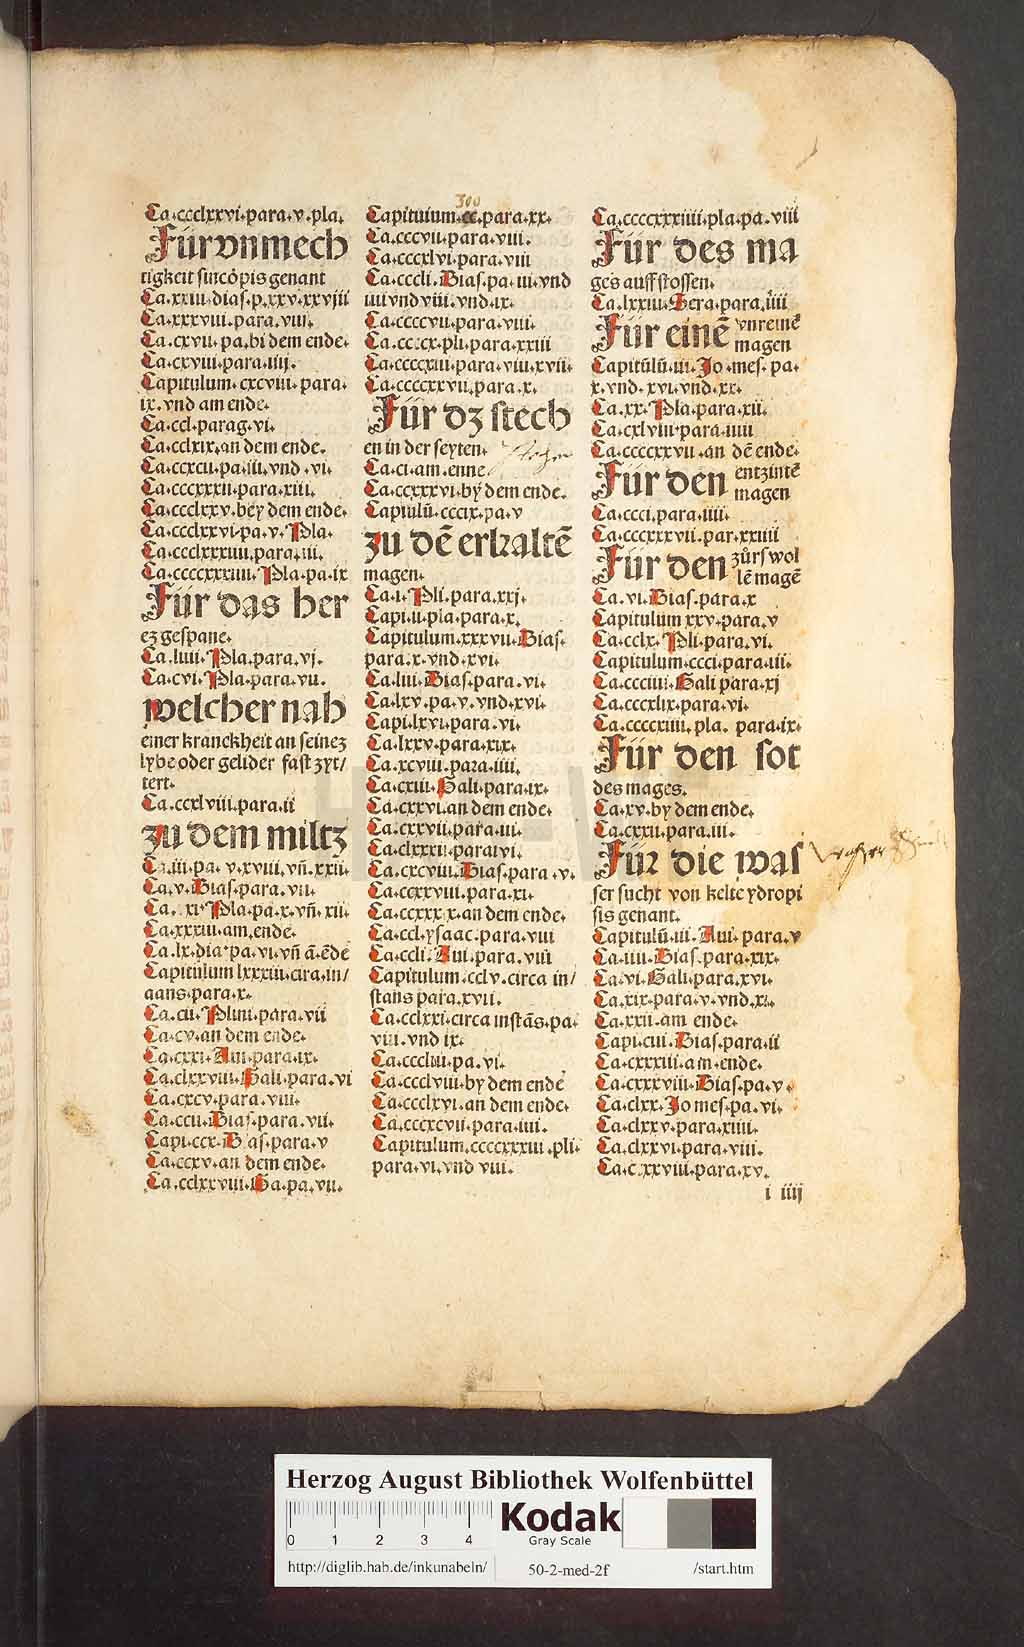 Ca.ccclxxvi.para.v.pla.
Für vnmech
tigkeit sincopis genant
Ca.xxiii.dias.p.xxv.xxviij
Ca.xxxviii.para.viii.
Ca.cxvii.pa.bi dem ende.
Ca.cxviii.para.iiij.
Capitulum.cxcviii.para.
ix.vnd am ende.
Ca.ccl.parag.vi.
Ca.cclxix.an dem ende.
Ca.ccxcii.pa.iii.vnd.vi.
Ca.cccxxxii.para.xiii.
Ca.ccclxxv.bey dem ende.
Ca.ccclxxvi.pa.v.Pla.
Ca.ccclxxxiiii.para.iii.
Ca.ccccxxxiiii.Pla.pa.ix
Für das her
cz gespane.
Ca.liiii.Pla.para.vj.
Ca.cvi.Pla.para.vii.
welcher nah
einer kranckheit an seinez
lybe oder gelider fast zyt/
tert.
Ca.ccxlviii.para.ii
zu dem miltz
Ca.iii.pa.v.xviii.vñ.xxii.
Ca.v.Bias.para.vii.
Ca.xi.Pla.pa.x.vñ.xii.
Ca.xxxiii.am.ende.
Ca.lx.dia.pa.vi.vñ ā.ēde
Capitulum lxxxiii.cira.in/
aans.para.x.
Ca.cii.Plini.para.vii
Ca.cv.an dem ende.
Ca.cxxi.Aui.para.ix.
Ca.clxxviii.Gali.para.vi
Ca.cxcv.para.viii.
Ca.ccii.Bias.para.vii.
Capi.ccx.Bias.para.v
Ca.ccxv.an dem ende.
Ca.cclxxviii.Ga.pa.vii.
300
Capitulum.cc.para.xx.
Ca.cccvii.para.viii.
Ca.cccxlvi.para.viii
Ca.cccli.Bias.pa.iii.vnd
iiii vnd viii.vnd.ix.
Ca.ccccvii.para.viii.
Ca.ccccx.pli.para.xxiii
Ca.ccccxiii.para.viii.xvii.
Ca.ccccxxvii.para.x.
Für dz stech
en in der seyten.
Ca.ci.am.enne.
Ca.ccxxxvi.by dem ende.
Capiulū.cccix.pa.v
zu dē erkaltē
magen.
Ca.i.Pli.para.xxj.
Capi.ii.pla.para.x.
Capitulum.xxxvii.Bias.
para.x.vnd.xvi.
Ca.liii.Bias.para.vi.
Ca.lxv.pa.v.vnd.xvi.
Capi.lxvi.para.vi.
Ca.lxxv.para.xix.
Ca.xcviii.para.iiii.
Ca.cxiii.Gali.para.ix.
Ca.cxxvi.an dem ende.
Ca.cxxvii.para.iii.
Ca.clxxxii.para.vi.
Ca.cxcviii.Bias.para.v.
Ca.ccxxviii.para.xi.
Ca.ccxxxix.an dem ende.
Ca.ccl.ysaac.para.viii
Ca.ccli.Aui.para.viii
Capitulum.cclv.circa in/
stans para.xvii.
Ca.cclxxi.circa instās.pa.
viii.vnd ix.
Ca.cccliii.pa.vi.
Ca.ccclviii.by dem ende
Ca.ccclxvi.an dem ende.
Ca.cccxcvii.para.iiii.
Capitulum.ccccxxxiii.pli.
para.vi.vnd viii.
Ca.ccccxxxiiii.pla.pa.viii
Für des ma
ges auffstossen.
Ca.lxxiii.Sera.para.iiii
Für einē vnreinē
magen
Capitulū.iii.Jo.mes.pa.
x.vnd.xvi.vnd.xx.
Ca.xx.Pla.para.xii.
Ca.cxlviii.para.iiii
Ca.ccccxxvii.an dē ende.
Für den entzintē
magen
Ca.ccci.para.iiii.
Ca.cccxxxvii.par.xxiiii
Für den zůrswol
lē magē
Ca.vi.Bias.para.x
Capitulum xxv.para.v
Ca.cclx.Pli.para.vi.
Capitulum.ccci.para.iii.
Ca.ccciiii.Gali para.xj
Ca.cccxlix.para.vi.
Ca.ccccxiiii.pla. para.ix.
Für den sot
des mages.
Ca.xv.by dem ende.
Ca.cxxii.para.iii.
Für die was
ser sucht von kelte ydropi
sis genant.
Capitulū.iii.Aui.para.v
Ca.iiii.Bias.para.xix.
Ca.vi.Gali.para.xvi.
Ca.xix.para.v.vnd.xi.
Ca.xxii.am ende.
Capi.ciii.Bias.para.ii
Ca.cxxxiii.am.ende.
Ca.cxxxviii.Bias.pa.v.
Ca.clxx.Jo mes.pa.vi.
Ca.clxxv.para.xiiii.
Ca.clxxvi.para.viii.
Ca.c.xxviii.para.xv.
i iiij
Herzog August Bibliothek Wolfenbüttel
0 1 2 3 4
Kodak
Gray Scale
http://diglib.hab.de/inkunabeln/ 50-2-med-2f /start.htm